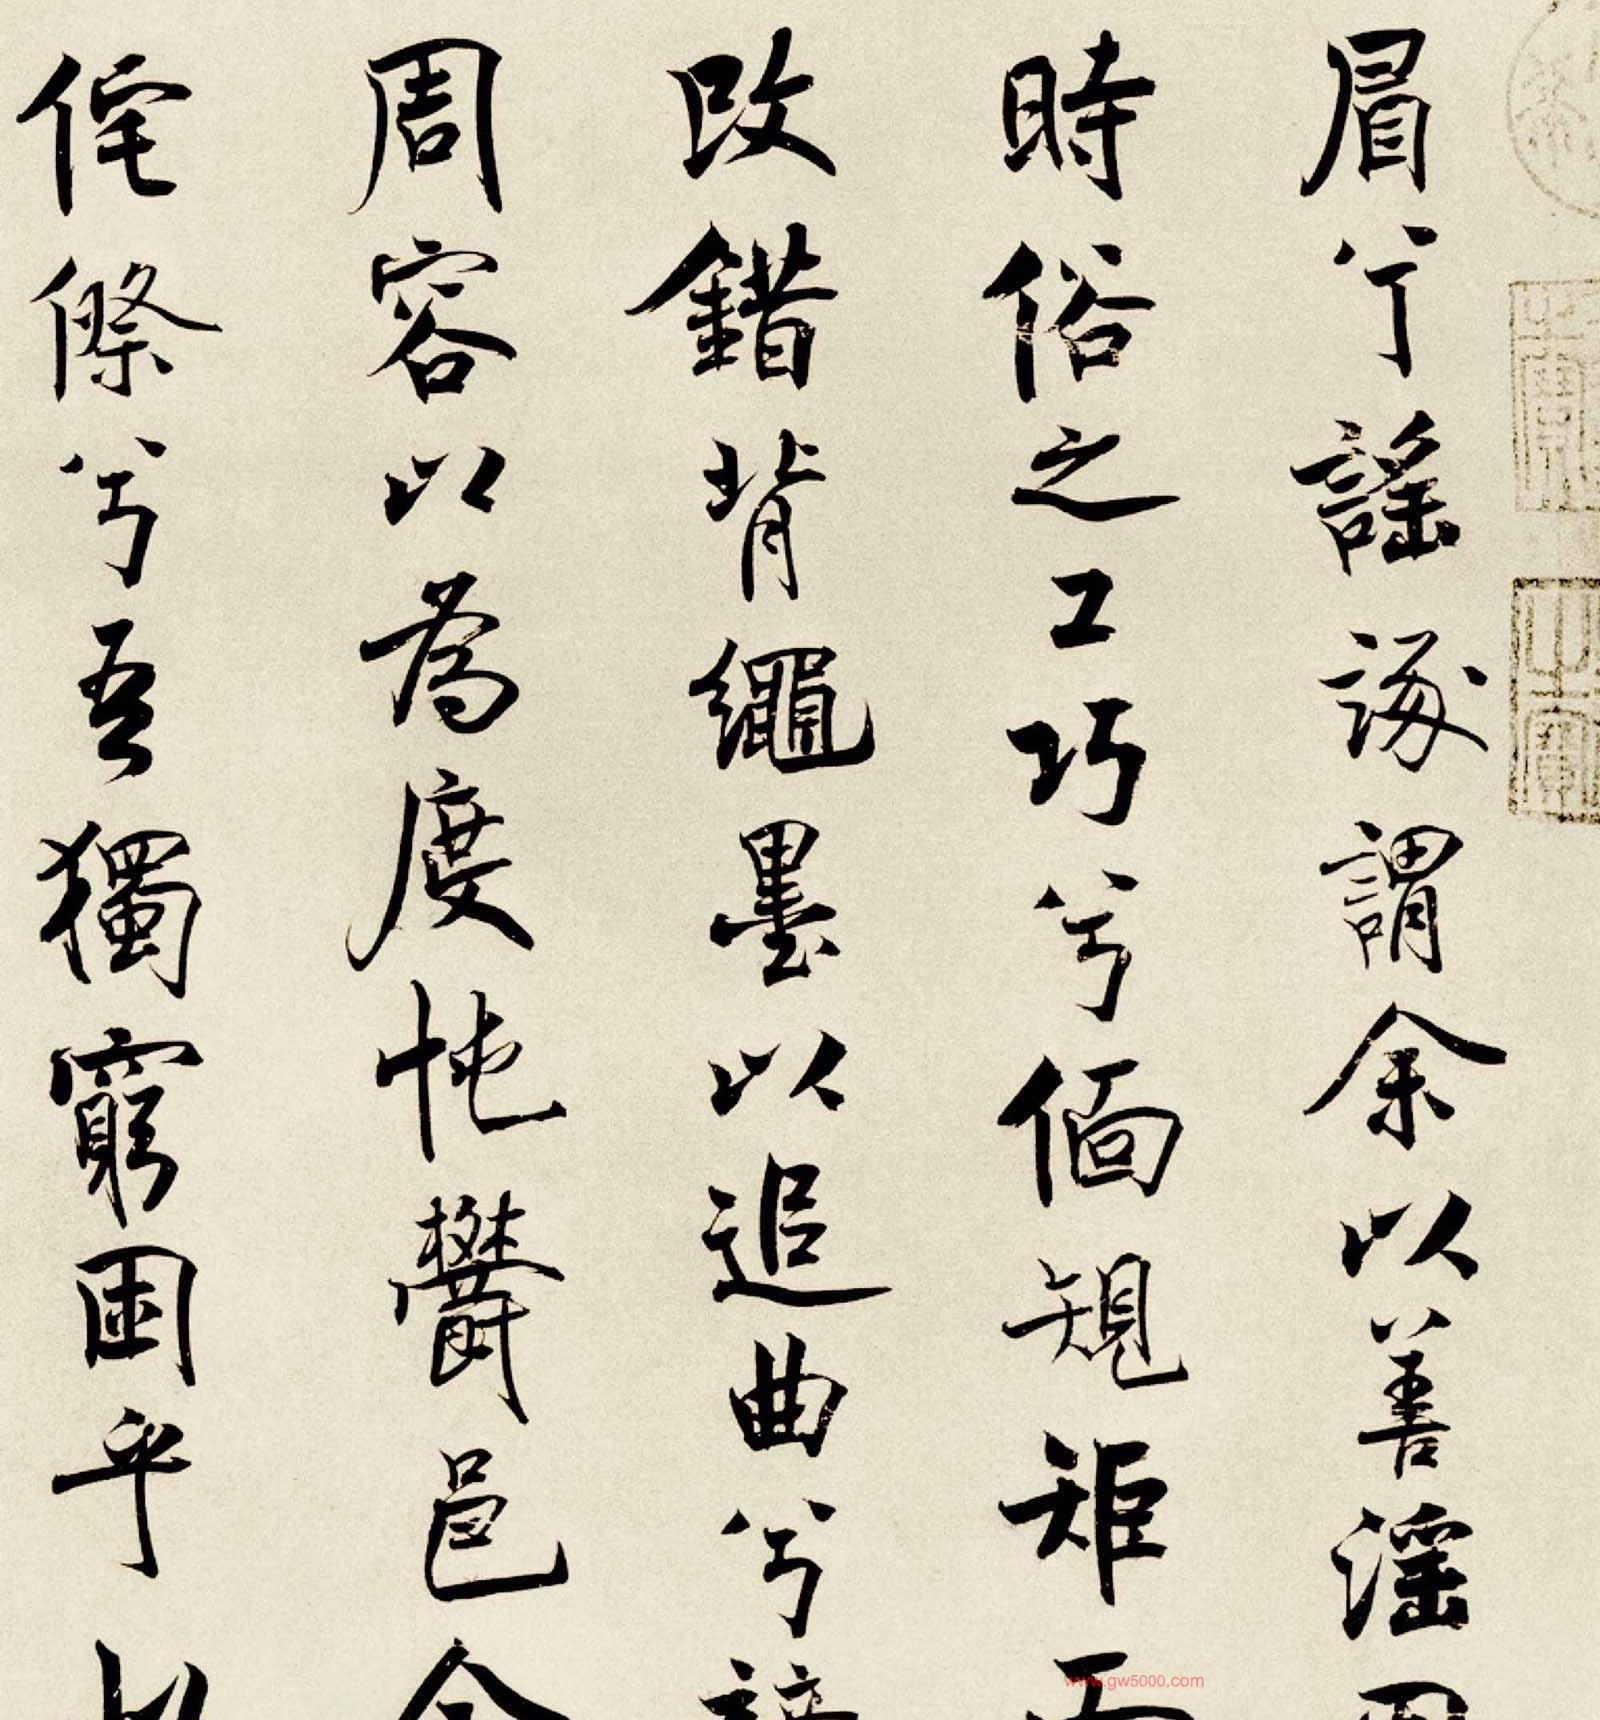 眉兮謠諑謂余以善淫固
時俗之工巧兮偭規矩而
改錯背繩墨以追曲兮競
周容以為度忳鬱邑余
侘傺兮吾獨窮困乎
www.gw5000.com